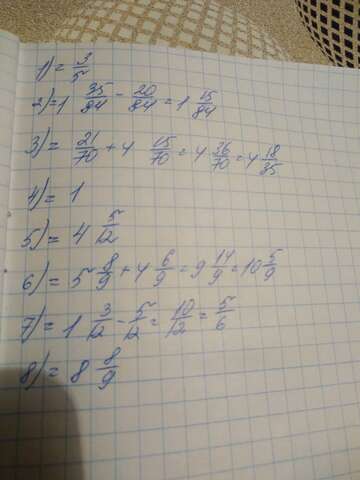 1) = 3/5
2) = 1 35/84 - 20/84 = 1 15/84
3) = 21/70 + 4 15/70 = 4 36/70 = 4 18/35
4) = 1
5) = 4 5/12
6) = 5 8/9 + 4 6/9 = 9 14/9 = 10 5/9
7) = 1 3/12 - 5/12 = 10/12 = 5/6
8) = 8 8/9